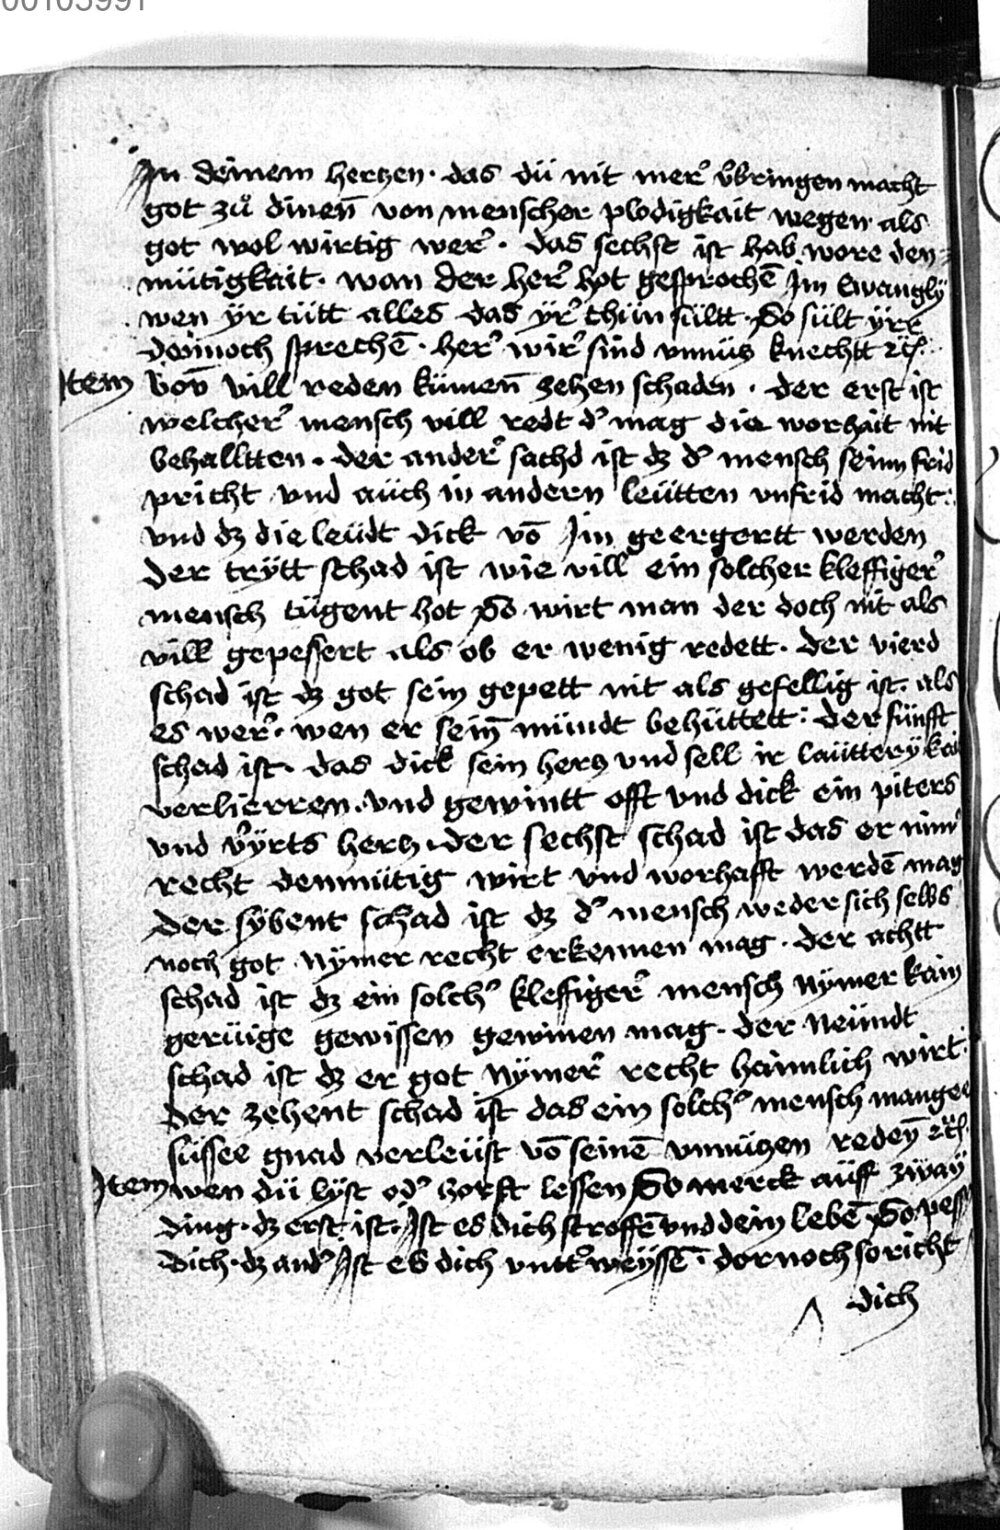 00103991
In deinem hertzen · das dü nit mer vbringen macht
got zů dinen̄ von menscher plodigkait wegen als
got wol wirtig wer · das sechst ist hab wore den=
mütigkait · wan der her hot gesprochē Im Ewangly
wen yr tütt alles das yr thün sültt · So sült yr
dennoch sprechē · her wir sind vnnütz knechtt ꝛc̄
Item vō vill reden kümen̄ zehen schaden · der erst ist
welcher mensch vill redt d' mag die worhait nit
behalltten · der ander sachd ist dz d' mensch seinn frid
pricht vnd aüch in andern leütten vnfrid macht :
vnd dz die leüdt dick vō Im geergertt werden
Der trytt schad ist wie vill ein solcher kleffiger
mensch tügent hot So wirt man der doch nit als
vill gepessert als ob er wenig redett · der vierd
schad ist dz got sein gepett nit als gefellig ist · als
es wer · wen er sein̄ mündt behüttett : der fünfft
schad ist · das dick sein hertz vnd sell ir laütterykai
verlierren · vnd gewintt offt vnd dick ein piters
vnd vyrts hertz · der sechst schad ist das er nim'
recht denmütig wirt vnd worhafft werdē mag
Der sybent schad ist dz d' mensch weder sich selbs
noch got nymer recht erkennen mag · der achtt
schad ist dz ein solch' kleffiger mensch nymer kain
gerüige gewissen gewinen mag · der neündt
schad ist dz er got nymer recht haimlich wirt :
Der zehent schad ist das ein solch' mensch mangee
süssee gnad verleüst vō seinē vnnützen redeȳ ꝛc̄
Item wen dü lyst od' horst lessen So merck aüff zway
ding · dz erst ist · Ist es dich stroffē vnd dein lebē So pess
dich · dz and' Ist es dich vntt'weyssē · dornoch so richt
dich